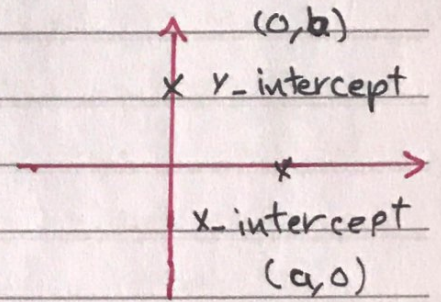 (0,b)
y-intercept
x-intercept
(a,0)